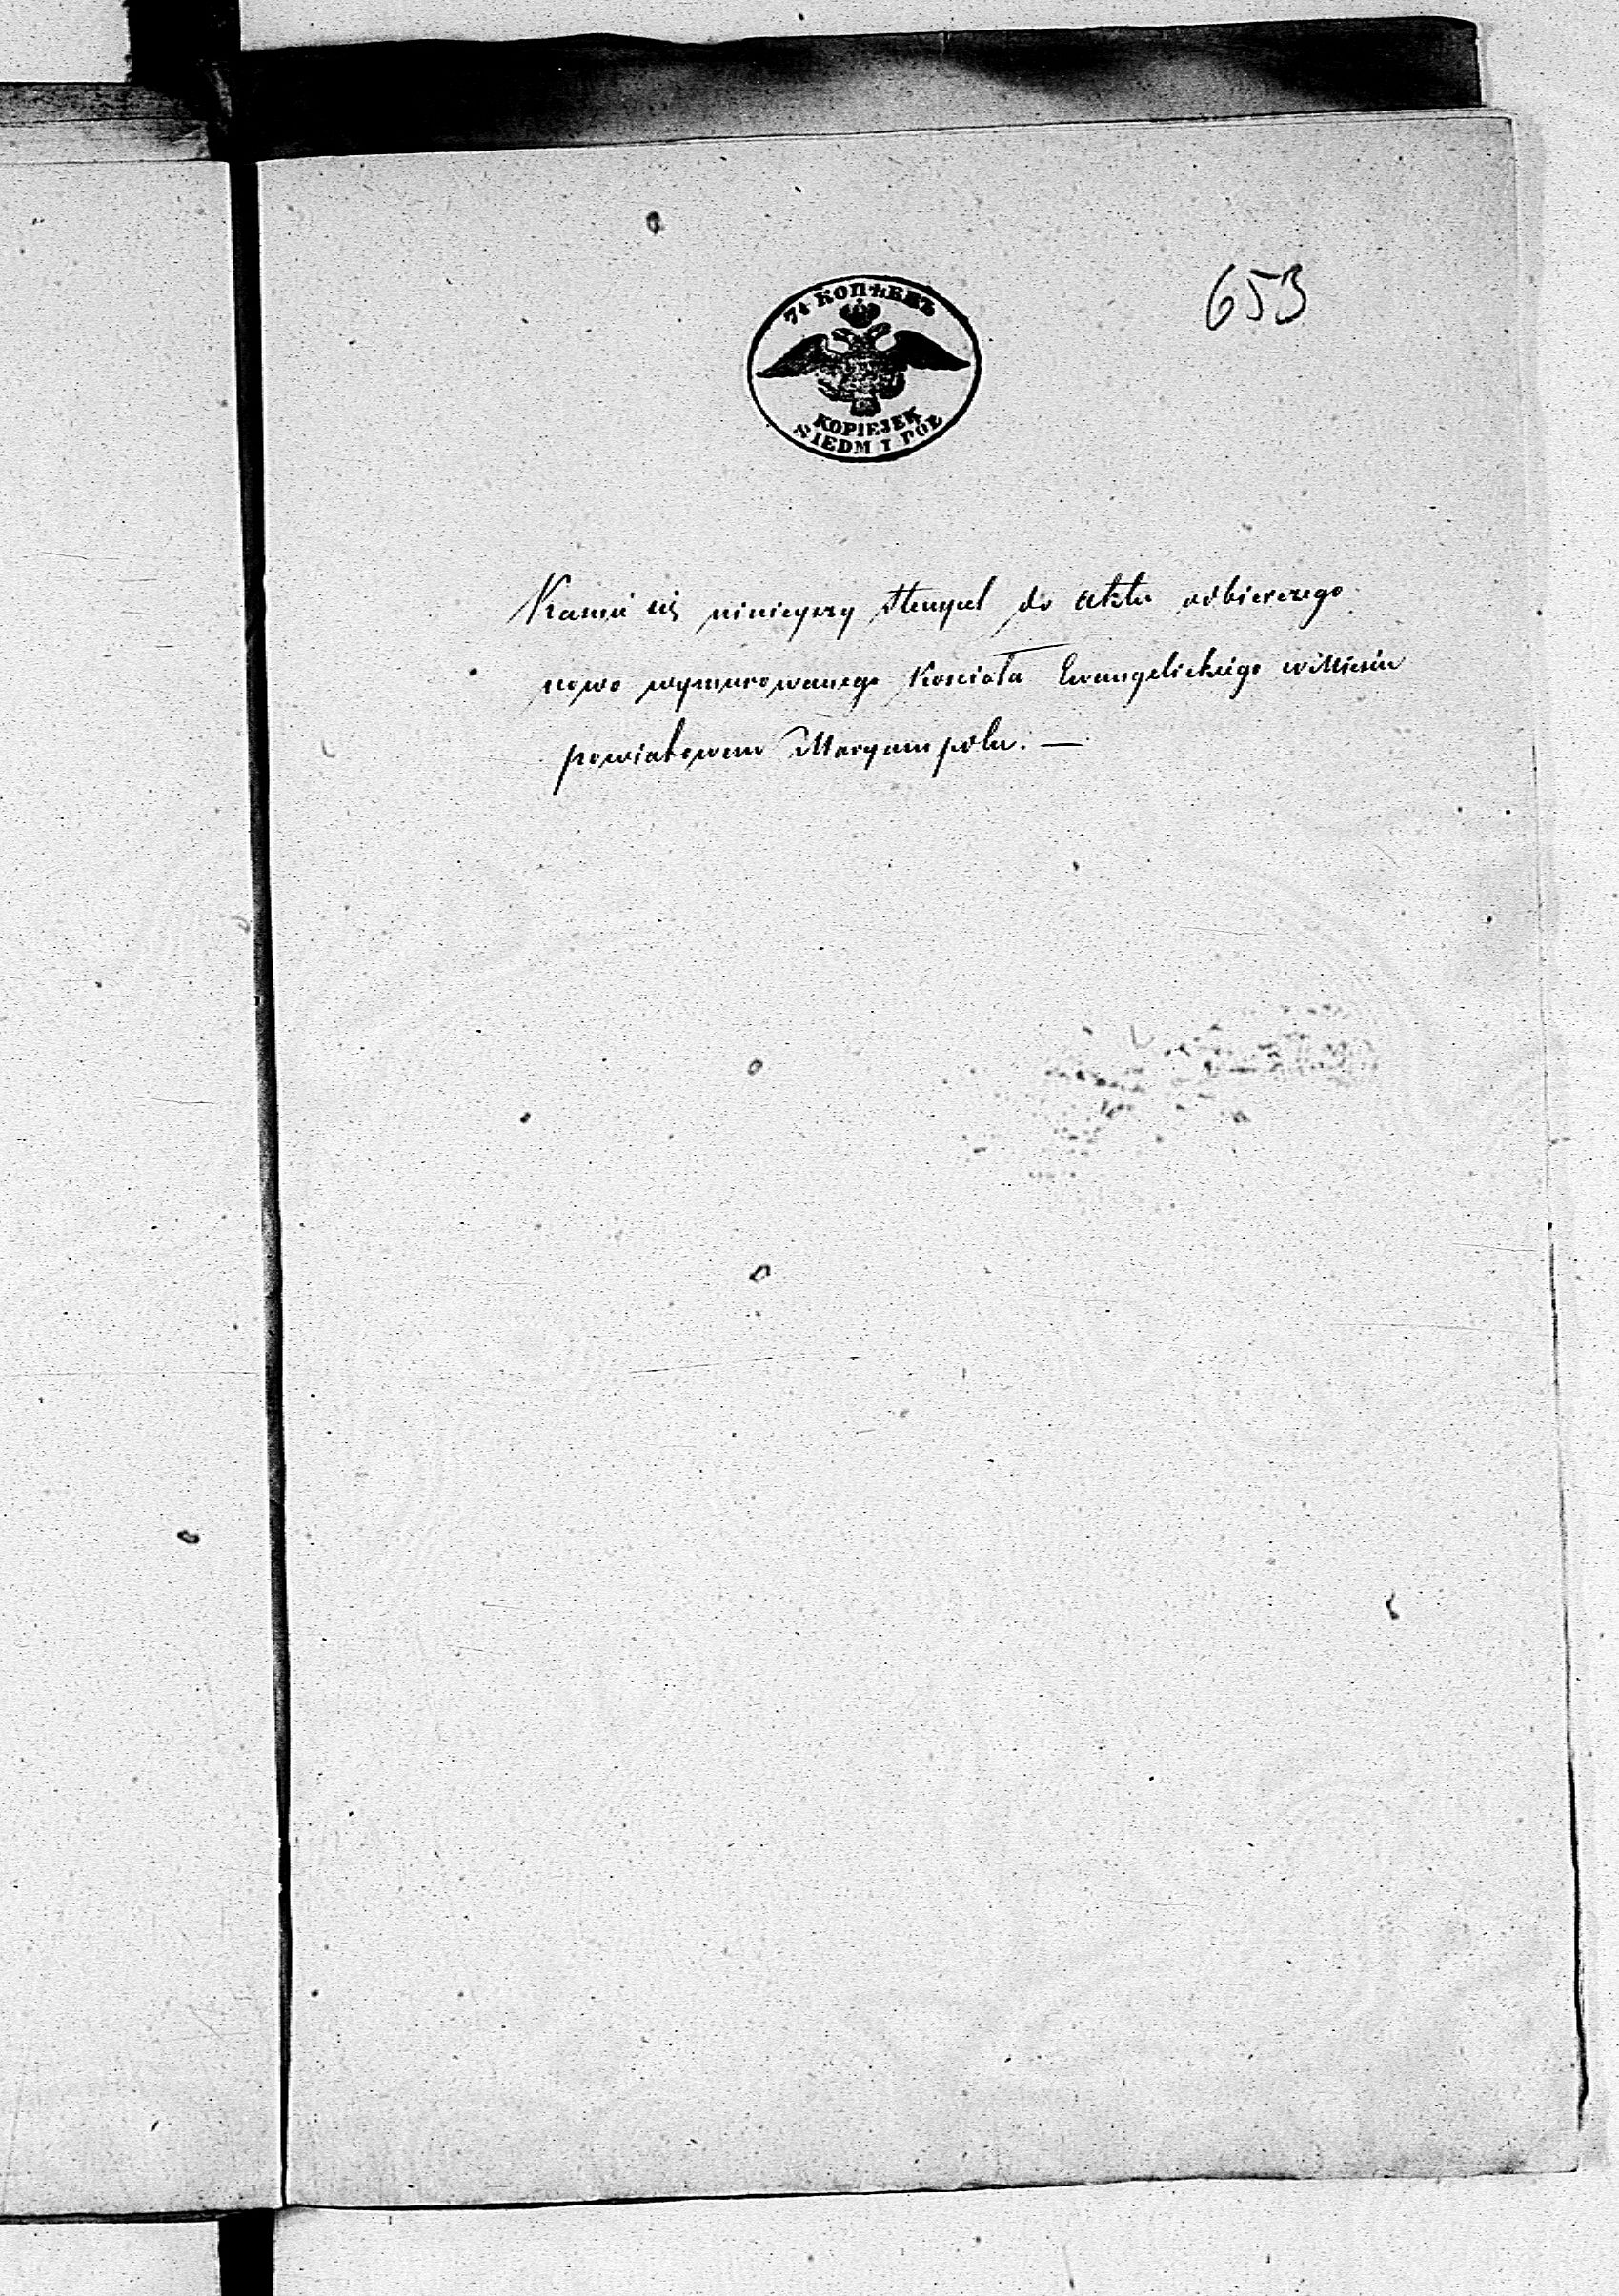 653
7½ КОПѢЕКЪ
KOPIEJEK
SIEDM I PÓŁ
Kassuie się ninieyszy Stempel do aktu odbiorczego
nowo wymurowanego Kościoła Ewangelickiego w Mieście
powiatowem Maryampolu. —